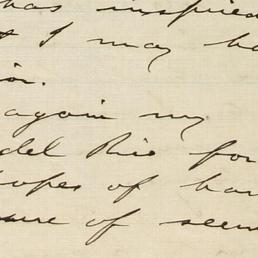 has inspired
I may ha
again my
del Rio for
hopes of hav
sure of seein